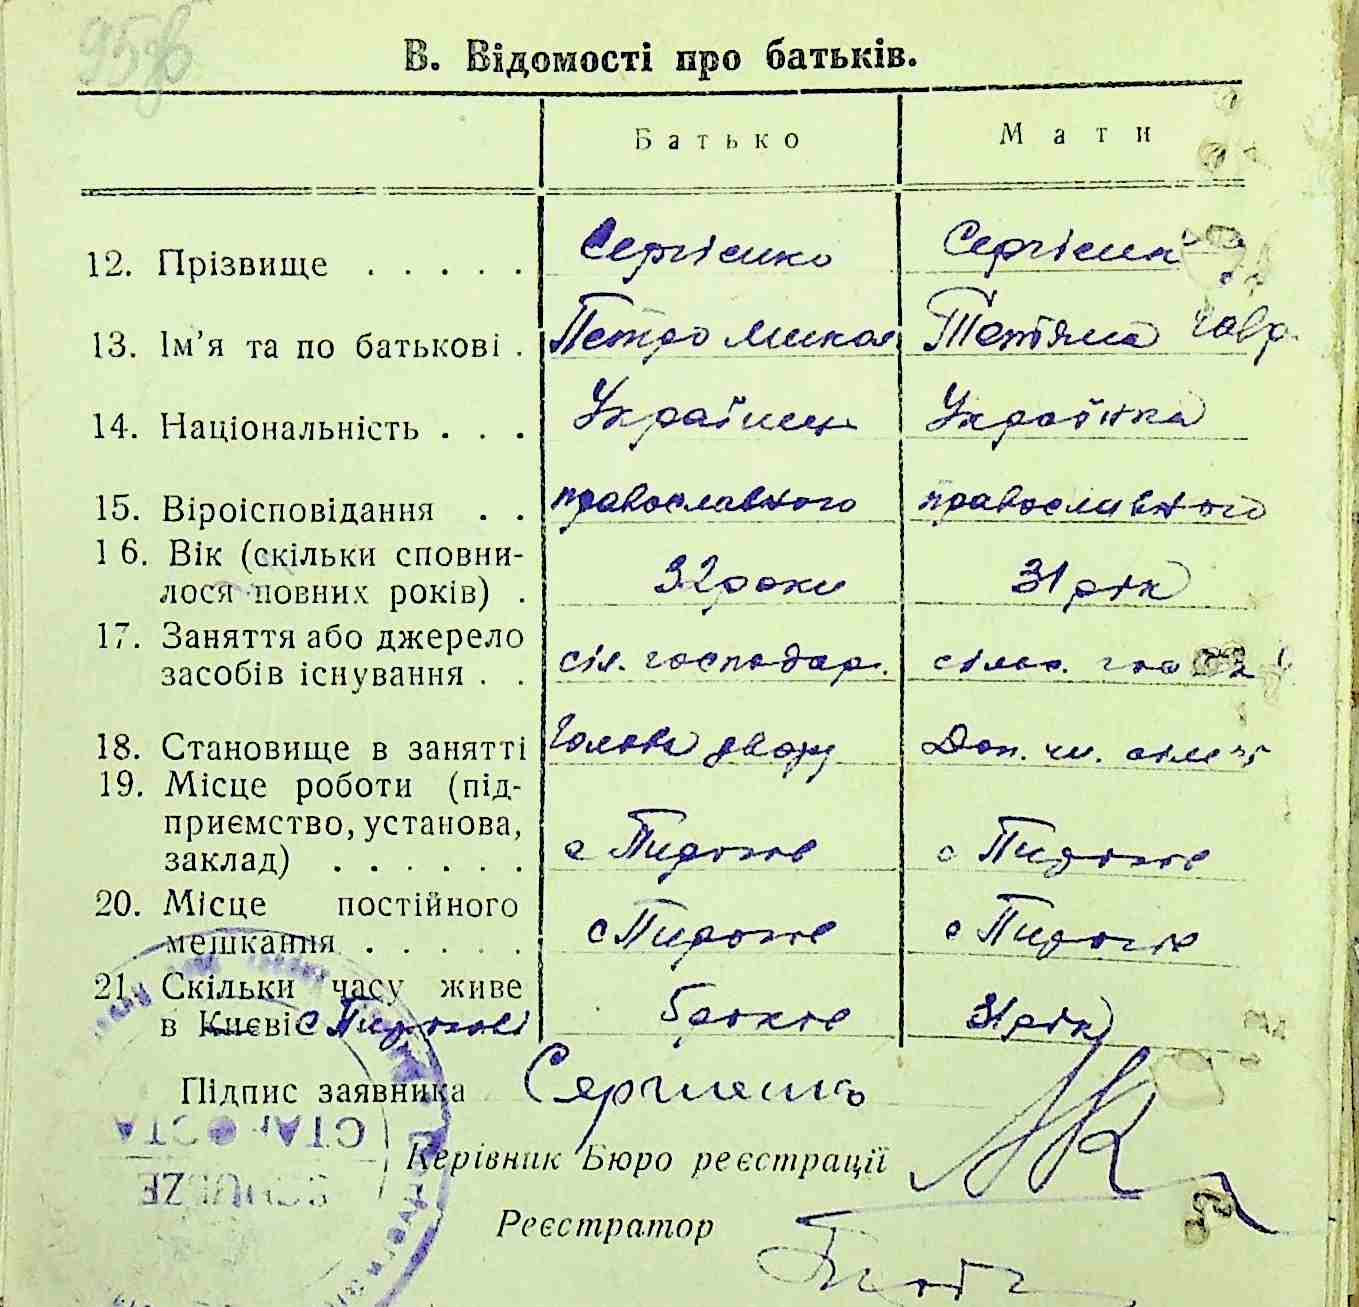 В. Відомості про батьків.
Батько Мати
12. Прізвище . . . . . Сергієнко Сергієнк
13. Ім'я та по батькові . Петро Микол Тетяна Гавр.
14. Національність . . . Українець Українка
15. Віроісповідання . . православного православного
16. Вік (скільки сповни-
лося повних років) . 32 роки 31 рік
17. Заняття або джерело
засобів існування . . сіл. господар. сільс. госп
18. Становище в занятті Голова двору Доп. чл. сім'ї
19. Місце роботи (під-
приємство, установа,
заклад) . . . . . . с Пирогов с Пирогов
20. Місце постійного
мешкання . . . . . с Пирогов с Пирогов
21. Скільки часу живе
в Києві с Пирогові 5 років 31 рік
Підпис заявника Сергиенко
Керівник Бюро реєстрації
СТАРОСТА
SCHULZE
Реєстратор